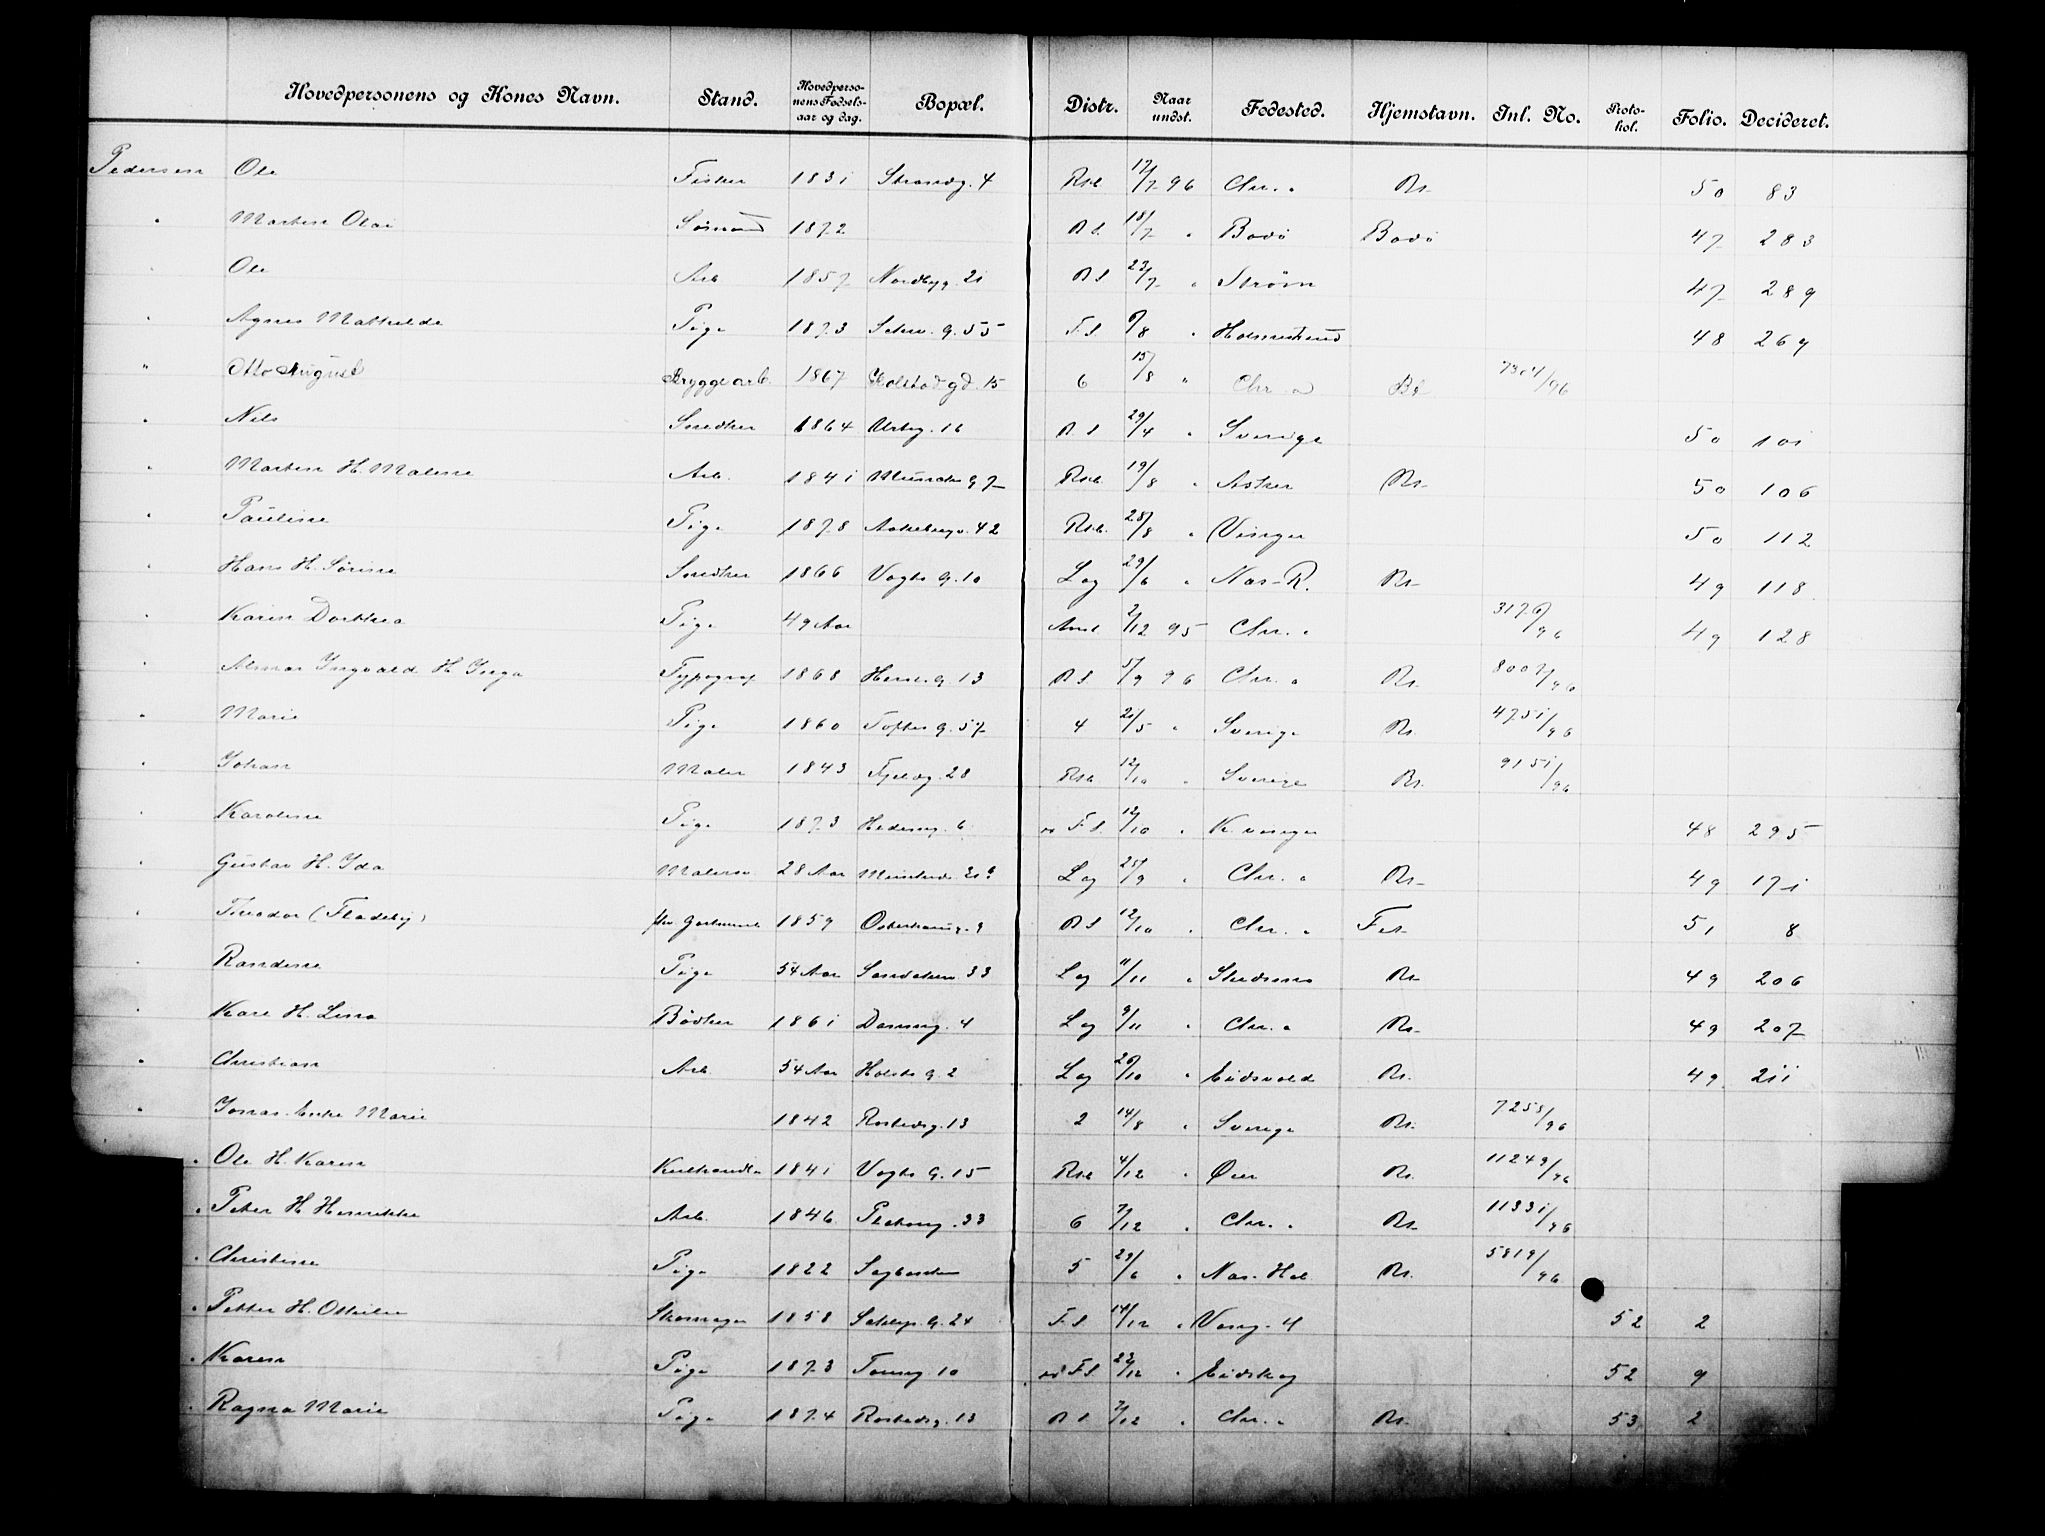 Hovedpersonens og Kones Navn. Stand. Hovedpersonens Fødselsaar og dag. Bopæl. Distr. Naar undst. Fødested. Hjemstavn. Inl. No. Protokol. Folio. Decideret.
Pedersen Ole Fisker 1831 Strandg. 4 Rsk 17/7 96 Chr.a Rs. 50 83
" Martin Olai Sømand 1872 Rs. 18/7 " Bodø Bodø 47 283
" Ole Arb 1857 Nordbyg. 21 Rs 23/7 " Strøm 47 289
" Agnes Mathilde Pige 1873 Schw. g. 55 F.s. 6/8 " Holmestrand 48 269
" Otto August Bryggearb. 1867 Galstad gd. 15 6 15/8 " Chr.a Bd 7304/96
" Nils Snedker 1864 Urtég. 16 Rs 29/4 " Sverige 50 101
" Martin H. Malene Arb. 1841 Munchs g 7 Rsk 19/8 " Asker Rs. 50 106
" Pauline Pige 1878 Aakebergv. 42 Rsk. 28/8 " Vinger 50 112
" Hans H. Sørine Snedker 1866 Vogts g. 10 Lag 29/6 " Næs-R. Rs. 49 118
" Karen Dorthea Pige 49 Aar Amt 2/12 95 Chr.a 3176/96 49 128
" Almar Ingvald H. Inga Typograf 1868 Hersl. g. 13 Rs. 5/9 96 Chr.a Rs. 8007/96
" Marie Pige 1860 Toftes g. 57 4 21/5 " Sverige Rs. 4751/96
" Johan Maler 1843 Fjeldg. 28 Rsk 12/10 " Sverige Rs. 9151/96
" Karoline Pige 1873 Hedemg. 6 F.s. 12/10 " K.vinger 48 295
" Gustav H. Ida Malersv. 28 Aar Lag 25/9 " Chr.a Rs. 49 171
" Theodor (Fladeby) 1859 Osterhausg. 9 Rs 12/10 " Chr.a Fet 51 8
" Randine Pige 54 Aar Sandakerv. 33 Lag 11/11 " Skedsmo Rs. 49 206
" Kare H. Lina Bødker 1861 Darresg. 4 Lag 9/11 " Chr.a Rs. 49 207
" Christian Arb. 54 Aar Holsts g. 2 Lag 26/10 " Eidsvold Rs. 49 211
" Jonas Enke Marie 1842 Rostedsg. 13 2 14/8 " Sverige Rs. 7258/96
" Ole H. Karen Kulhandl. 1841 Vogts g. 15 Rsk 4/12 " Øier Rs. 11249/96
" Peter H. Henrikke Arb. 1846 Platoug. 33 6 7/12 " Chr.a Rs. 11331/96
" Christine Pige 1822 Sagbanken 5 29/6 " Næs. Hed Rs. 5819/96
" Petter H. Ottilie Skomager 1858 g. 24 F.s 14/12 " Vang. H 52 2
" Karen Pige 1873 Tomteg. 10 F.s 23/12 " Eidskog 52 9
" Ragna Marie Pige 1874 Rostedsg. 13 Rs. 7/12 " Chr.a Rs. 53 2